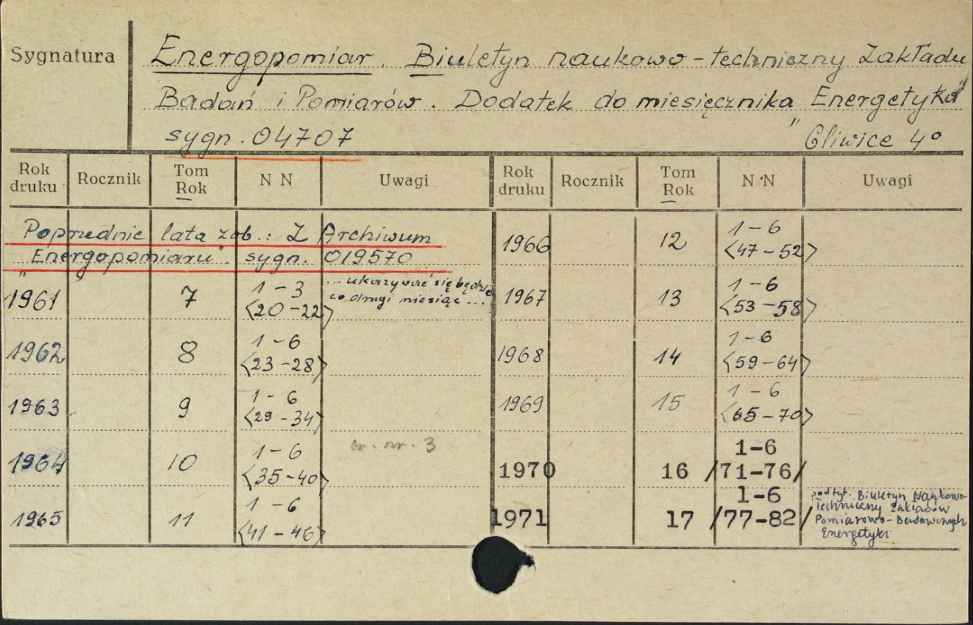 Sygnatura
Energopomiar. Biuletyn naukowo-techniczny Zakładu
Badań i Pomiarów. Dodatek do miesięcznika „Energetyka”
sygn. 04707 Gliwice 4°
Rok druku Rocznik Tom Rok N N Uwagi Rok druku Rocznik Tom Rok N N Uwagi
Poprzednie lata zob.: Z Archiwum
„Energopomiaru”. sygn. 019570
1961 7 1-3 <20-22> ...ukazywać się będzie co drugi miesiąc...
1962 8 1-6 <23-28>
1963 9 1-6 <29-34>
1964 10 1-6 <35-40> nr. 3
1965 11 1-6 <41-46>
1966 12 1-6 <47-52>
1967 13 1-6 <53-58>
1968 14 1-6 <59-64>
1969 15 1-6 <65-70>
1970 16 1-6 /71-76/
1971 17 1-6 /77-82/ podtyt. Biuletyn Naukowo-
Techniczny Zakładów
Pomiarowo-Badawczych
Energetyki